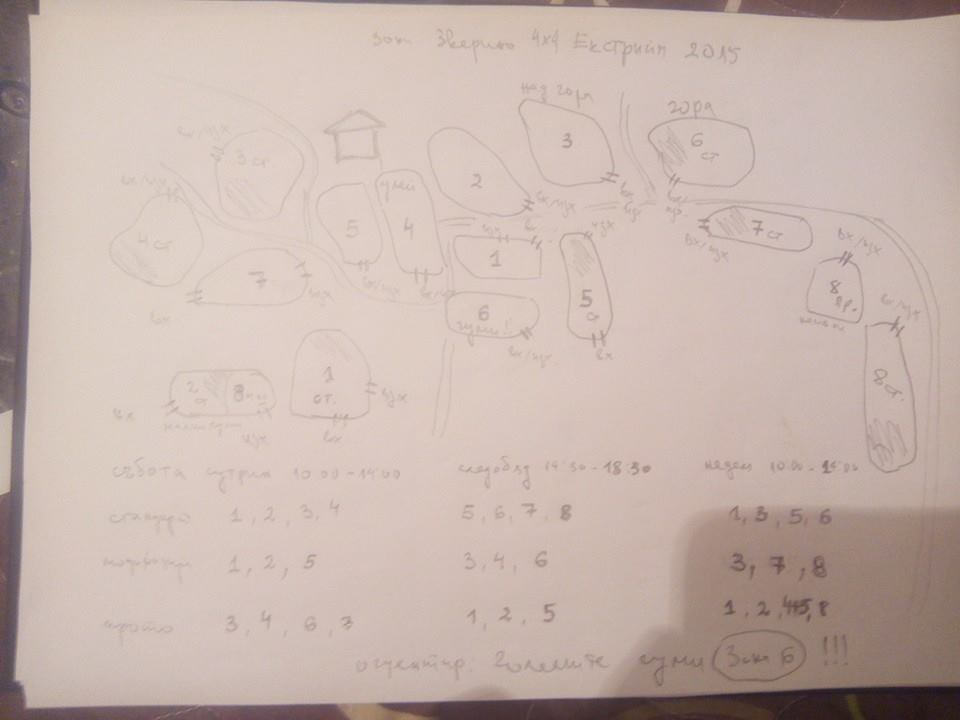 Зверино 4x4 Екстрийм 2015
над гора
гора
3
6
ст
вх/изх
3 ст.
2
вх/изх
4
5
вх/изх
7 ст
вх/изх
4 ст.
1
изх
вх
вх/изх
7
изх
вх
5
ст
вх
8
вх/изх
6
гуми!
вх/изх
8 ст.
вх/изх
2
ст
8
вх
изх
1
ст.
вх
изх
събота сутрин 10:00-14:00 следобяд 14:30-18:30 неделя 10:00-
стандарт 1, 2, 3, 4 5, 6, 7, 8 1, 3, 5, 6
1, 2, 5 3, 4, 6 3, 7, 8
прото 3, 4, 6, 7 1, 2, 5 1, 2, 8
ориентир: Големите гуми Зона 6 !!!